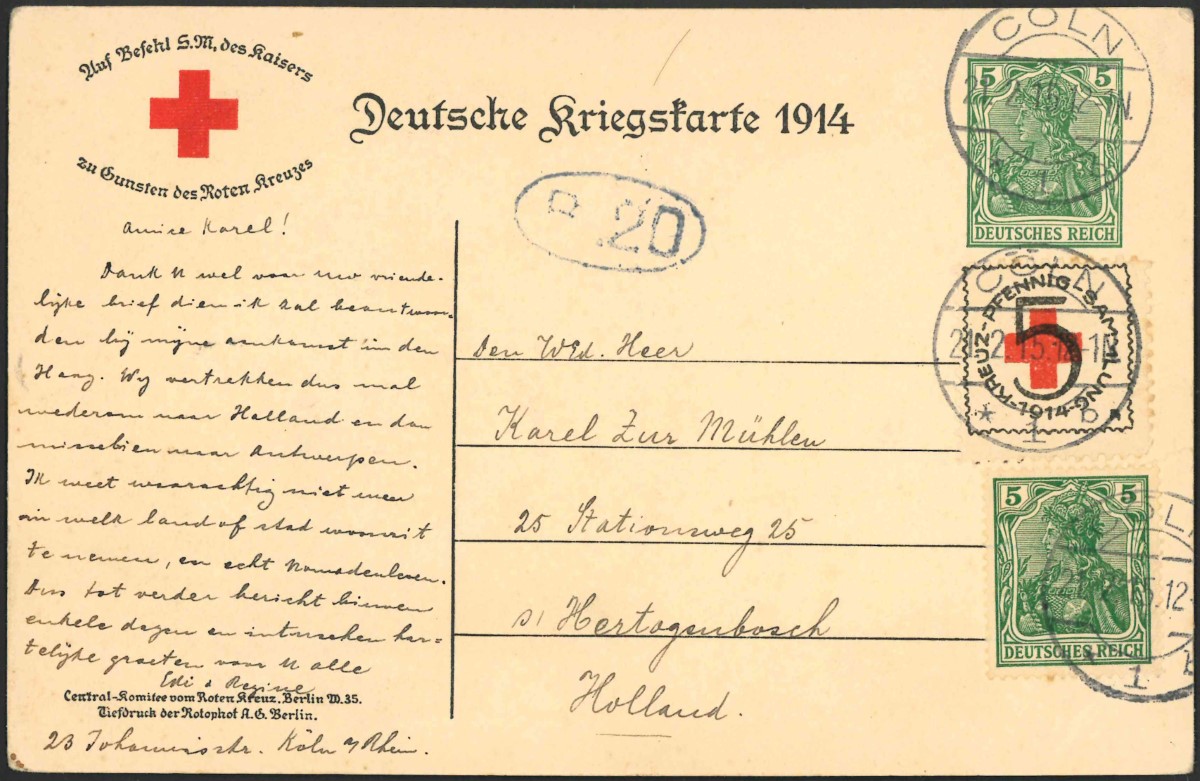 Auf Befehl S.M. des Kaisers
zu Gunsten des Roten Kreuzes
Deutsche Kriegskarte 1914
20
Amice Karel!
Dank U wel voor uw vriende-
lijke brief dien ik zal beantwoor-
den bij mijne aankomst in den
Haag. Wij vertrekken dus maar
wederom naar Holland en dan
misschien naar Antwerpen.
Ik weet waarachtig niet meer
in welk land of stad
te nemen, en echt Nomadenleven.
Dus tot verder bericht binnen
enkele dagen en intusschen har-
telijke groeten voor U alle
Edi & Regine
Central-Komitee vom Roten Kreuz. Berlin W. 35.
Tiefdruck der Rotophot A.G. Berlin.
23 Johannisstr. Köln a/Rhein.
Den WEd. Heer
Karel Zur Mühlen
25 Stationsweg 25
s' Hertogenbosch
Holland.
CÖLN
5 5
DEUTSCHES REICH
CÖLN
KREUZ-PFENNIG-SAMMLUNG 1914
5
21.2.15.12-1N
* 1 b
5 5
DEUTSCHES REICH
CÖLN
1 b